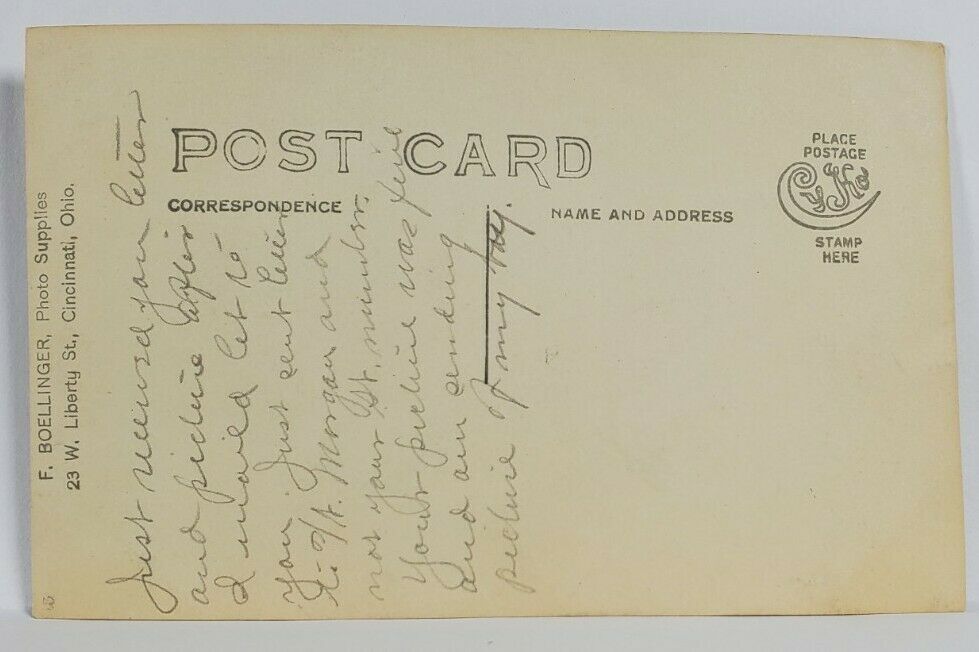 F. BOELLINGER, Photo Supplies
23 W. Liberty St., Cincinnati, Ohio.
POST CARD
CORRESPONDENCE
NAME AND ADDRESS
PLACE
POSTAGE
CyKo
STAMP
HERE
Just received your letter
and picture after
I mailed let to
you. Just sent letter
to Ft. Morgan and
not your St. number.
Your picture was fine
and am sending
picture of my boy.